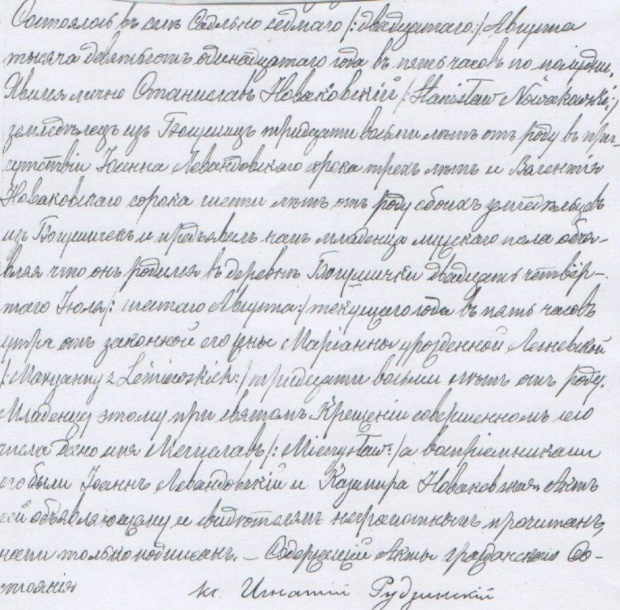 Состоялось въ селѣ Садльно седмаго /: двадцатаго :/ Августа
тысяча девятьсотъ одинадцатаго года въ пять часовъ по полудни.
Явился лично Станиславъ Новаковскій /: Stanisław Nowakowski :/
земледѣлецъ изъ тридцати восьми лѣтъ отъ роду въ при-
сутствіи Іоанна Левандовскаго сорока трехъ лѣтъ и Валентія
Новаковскаго сорока шести лѣтъ отъ роду обоихъ земледѣльцевъ
изъ и предъявилъ намъ младенца мужскаго пола объя-
вляя что онъ родился въ деревнѣ Богушички двадцать четвер-
таго Іюля /: шестаго Августа :/ текущаго года въ пять часовъ
утра отъ законной его жены Маріанны урожденной
/: Maryanny z :/ тридцати восьми лѣтъ отъ роду.
Младенцу этому при святомъ Крещеніи совершенномъ сего
числа дано имя Мечиславъ /: Mieczysław :/ а воспріемниками
его были Іоаннъ Левандовскій и Казимира Новаковская. Актъ
сей объявляющему и свидѣтелямъ неграмотнымъ прочитанъ,
нами только подписанъ. — Содержащій акты гражданскаго Со-
стоянія кс. Игнатій Рудзинскій